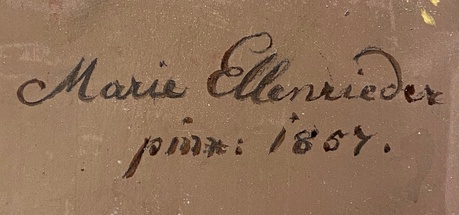 Marie Ellenrieder
pinx: 1857.